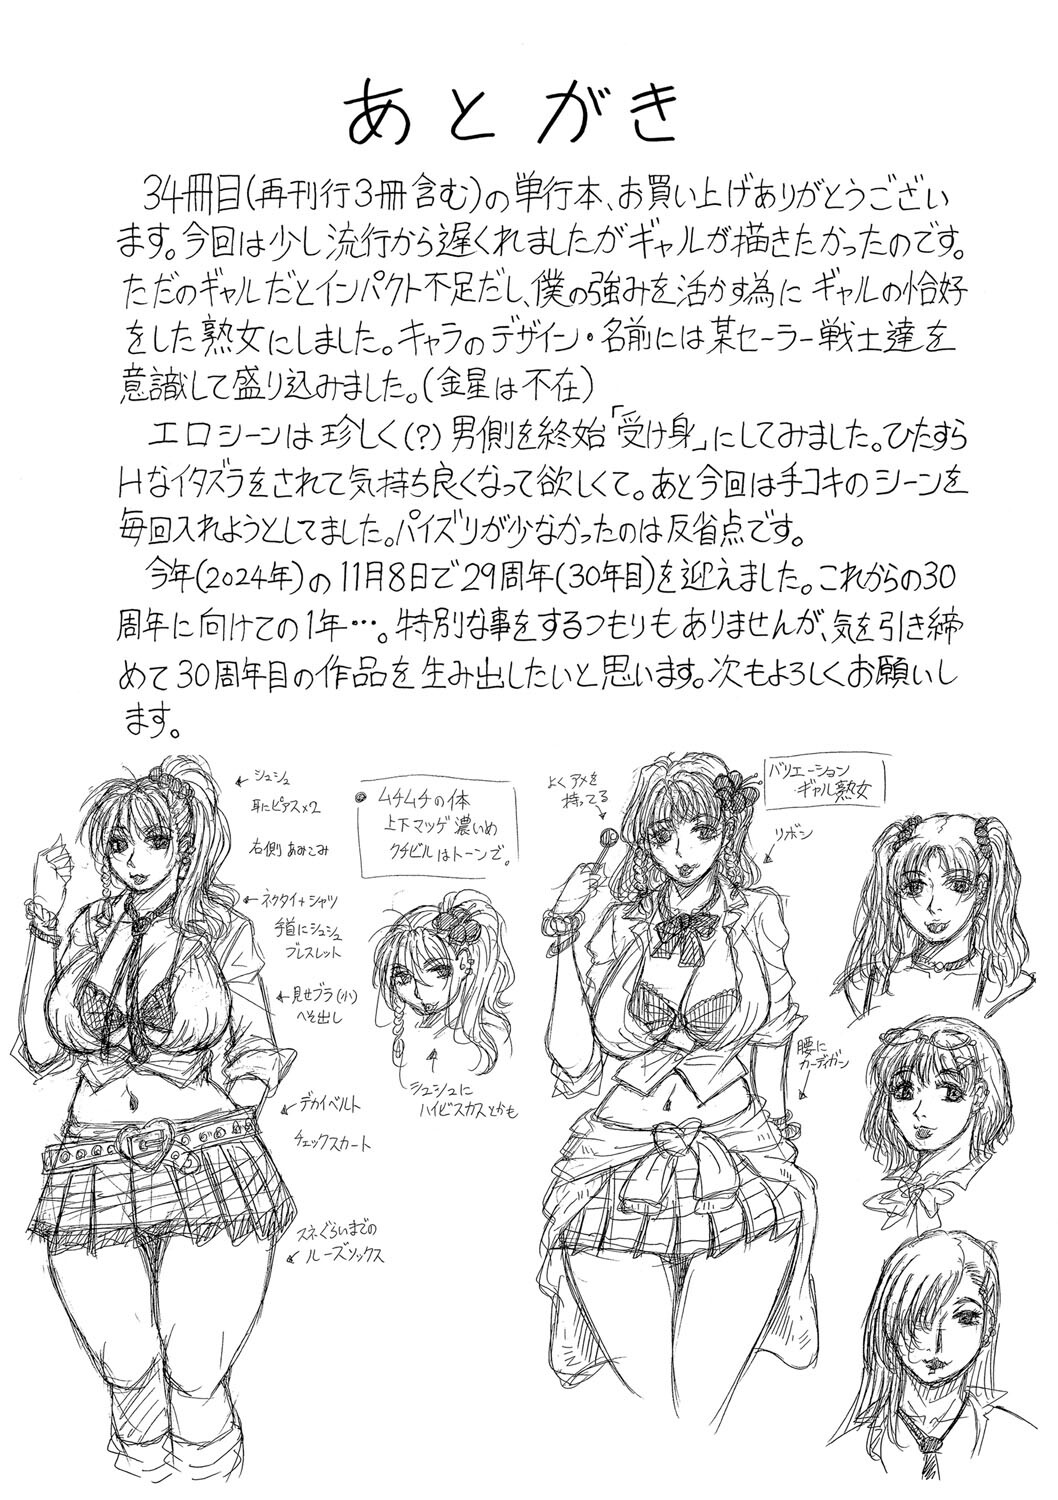 あとがき
34冊目(再刊行3冊含む)の単行本、お買い上げありがとうござい
ます。今回は少し流行から遅くれましたがギャルが描きたかったのです。
ただのギャルだとインパクト不足だし、僕の強みを活かす為にギャルの恰好
をした熟女にしました。キャラのデザイン・名前には某セーラー戦士達を
意識して盛り込みました。(金星は不在)
エロシーンは珍しく(?)男側を終始「受け身」にしてみました。ひたすら
Hなイタズラをされて気持ち良くなって欲しくて。あと今回は手コキのシーンを
毎回入れようとしてました。パイズリが少なかったのは反省点です。
今年(2024年)の11月8日で29周年(30年目)を迎えました。これからの30
周年に向けての1年…。特別な事をするつもりもありませんが、気を引き締
めて30周年目の作品を生み出したいと思います。次もよろしくお願いし
ます。
シュシュ
耳にピアス×2
右側あみこみ
ネクタイ+シャツ
手首にシュシュ
ブレスレット
見せブラ(小)
へそ出し
デカイベルト
チェックスカート
スネぐらいまでの
ルーズソックス
ムチムチの体
上下マツゲ濃いめ
クチビルはトーンで。
シュシュに
ハイビスカスとかも
よくアメを
持ってる
バリエーション
ギャル熟女
リボン
腰に
カーディガン